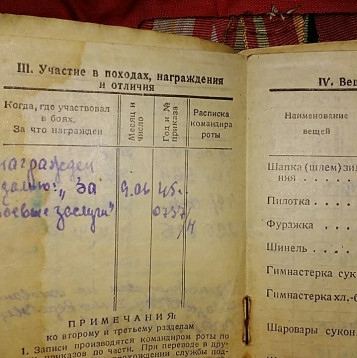 III. Участие в походах, награждения
и отличия
Когда, где участвовал
в боях.
За что награжден
Месяц и
число
Год и №
приказа
Расписка
командира
роты
награжден
далью: „За
боевые заслуги"
9.06 45г.
0737/н
ПРИМЕЧАНИЯ:
ко второму и третьему разделам
1. Записи производятся командиром роты по
приказам по части. При переводе в дру-
прохождении службы под-
IV. Вещ
Наименование
вещей
Шапка (шлем) зим
няя . . . .
Пилотка . . . .
Фуражка . . . .
Шинель . . . .
Гимнастерка сукон
Гимнастерка хл.-б
Шаровары сукон.